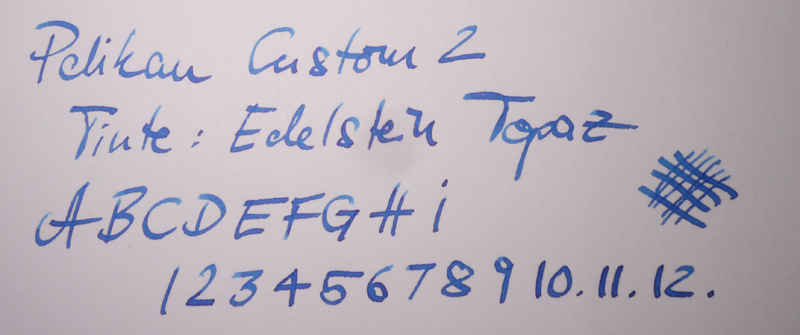 Pelikan Custom 2
Tinte: Edelstein Topaz
A B C D E F G H i
1 2 3 4 5 6 7 8 9 10. 11. 12.